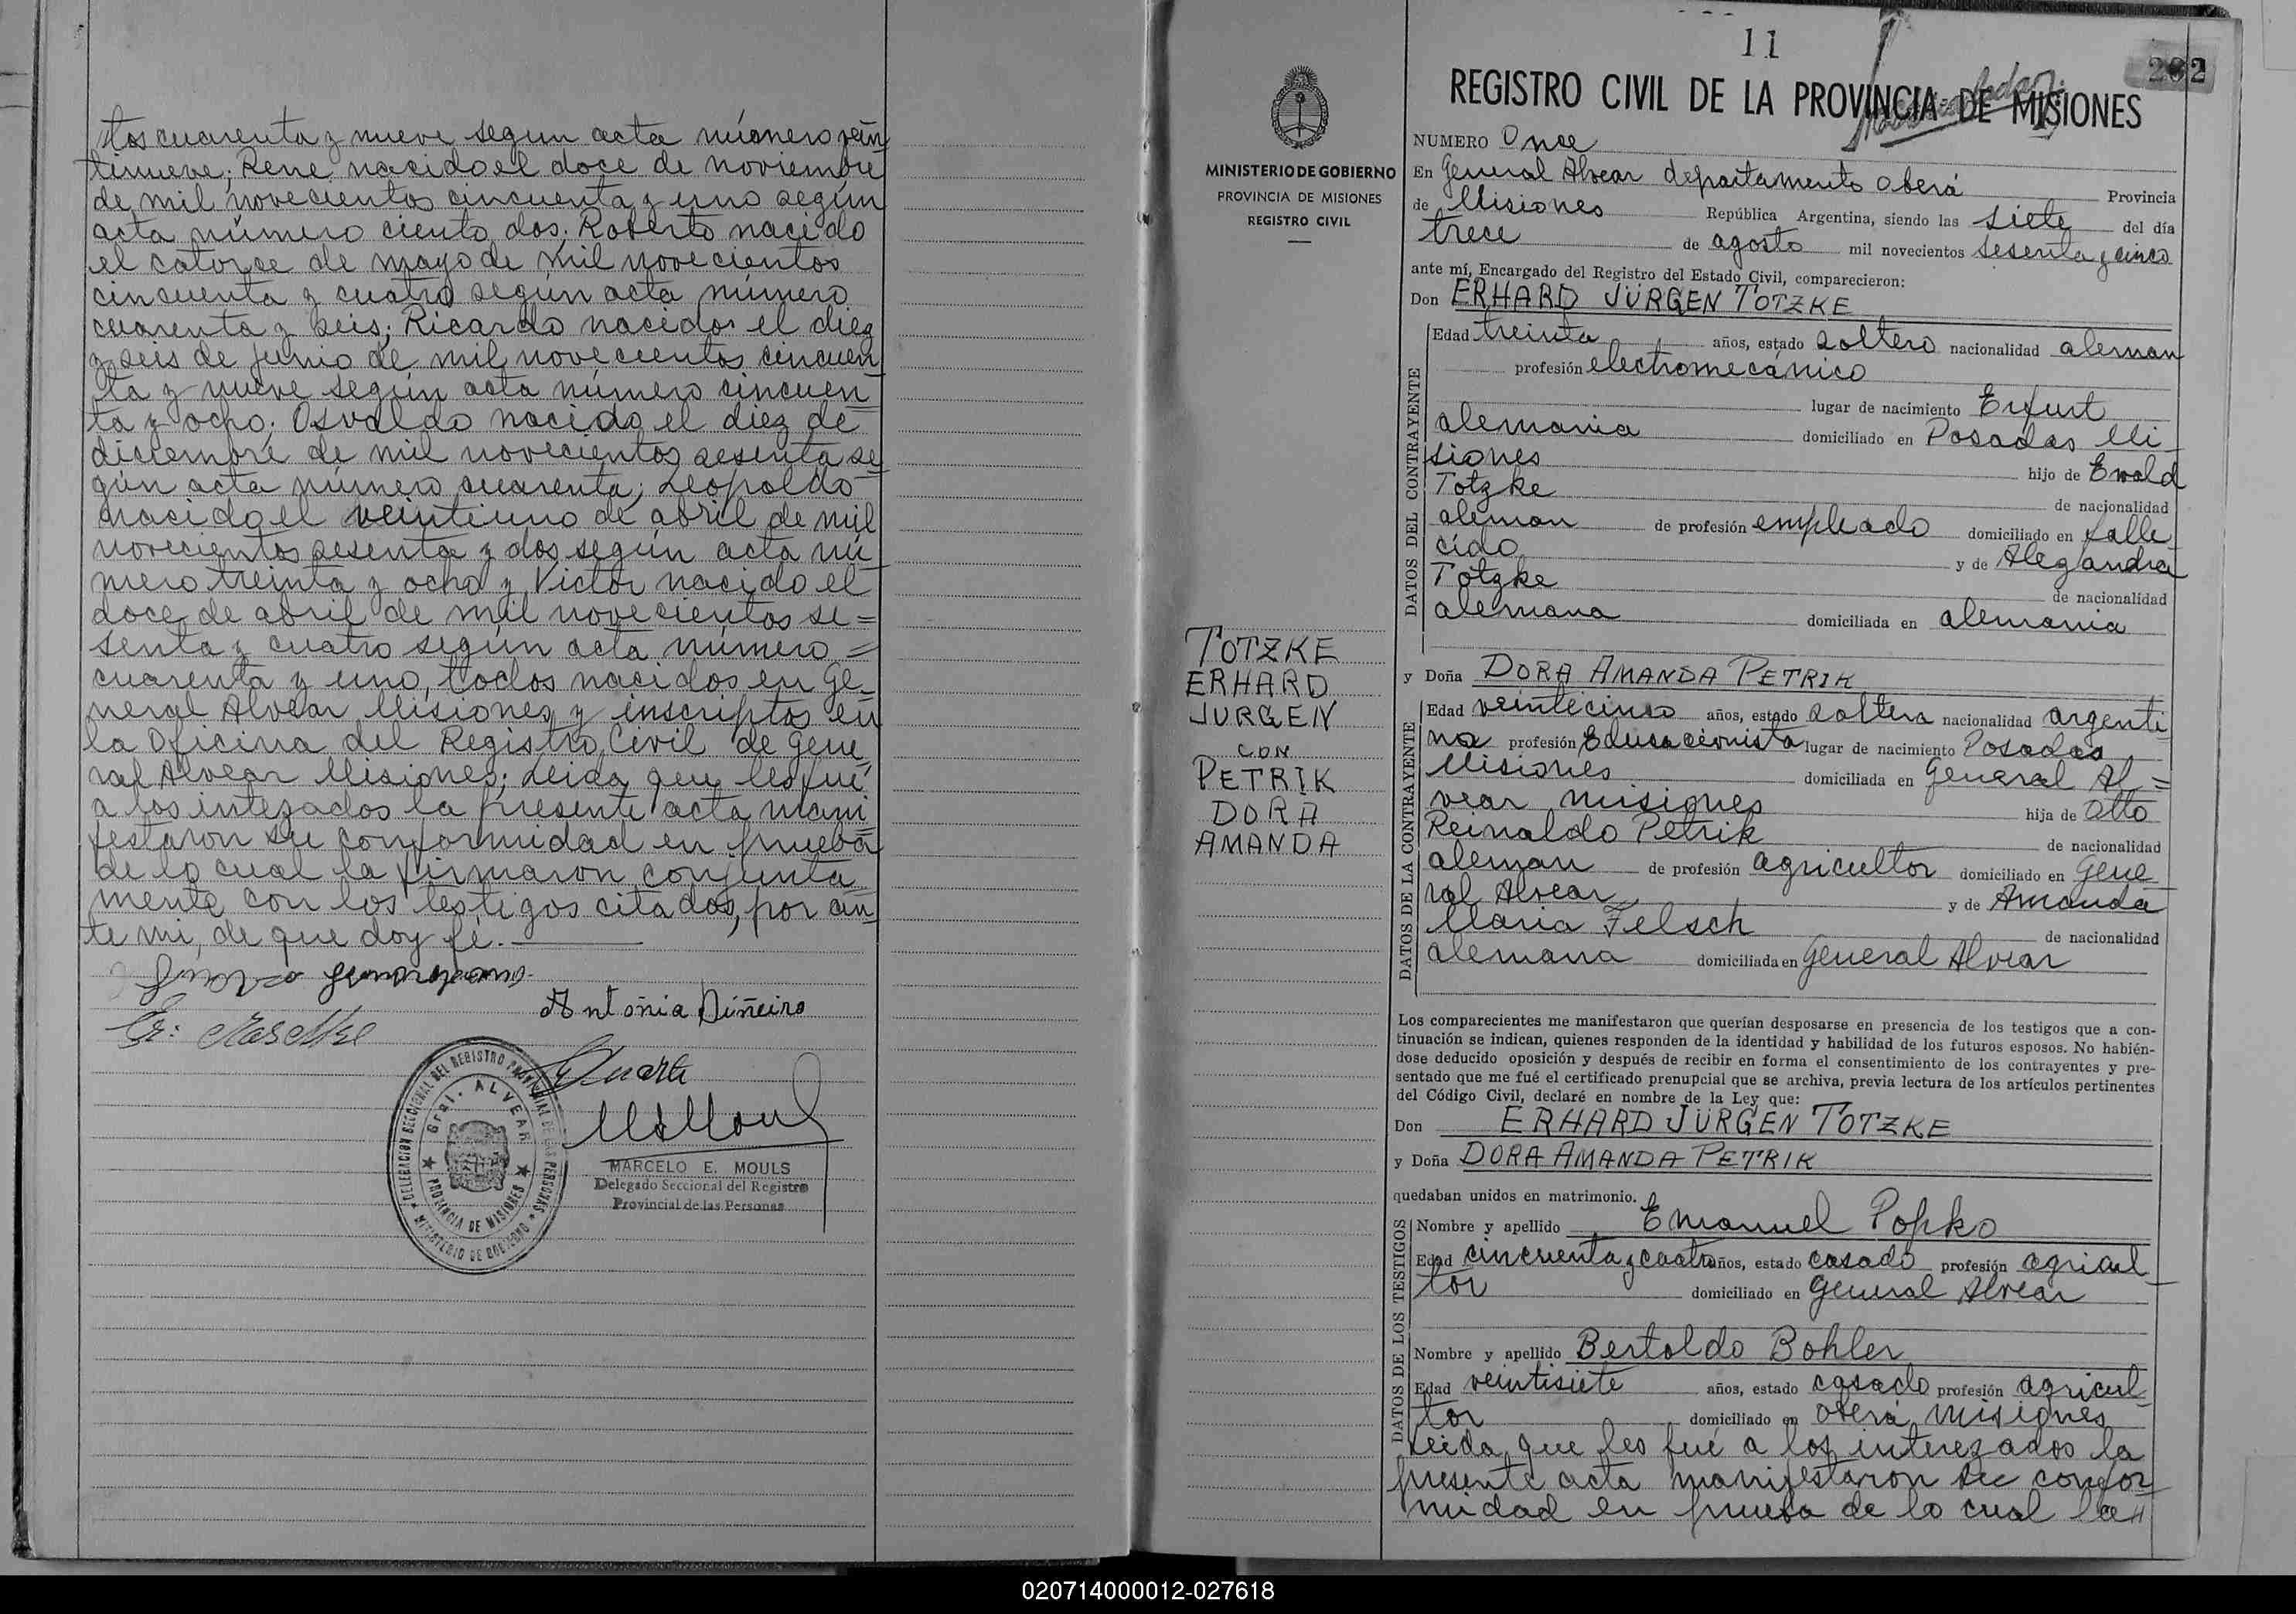 tos cuarenta y nueve segun acta número vein
tinueve; Rene nacido el doce de noviembre
de mil novecientos cincuenta y uno según
acta número ciento dos; Roberto nacido
el catorce de mayo de mil novecientos
cincuenta y cuatro según acta número
cuarenta y seis; Ricardo nacido el diez
y seis de junio de mil novecientos cincuen
ta y nueve según acta número cincuen
ta y ocho; Osvaldo nacido el diez de
diciembre de mil novecientos sesenta se
gún acta número cuarenta; Leopoldo
nacido el veintiuno de abril de mil
novecientos sesenta y dos según acta nú
mero treinta y ocho y Victor nacido el
doce de abril de mil novecientos se=
senta y cuatro según acta número =
cuarenta y uno, todos nacidos en Ge-
neral Alvear Misiones y inscriptos en
la Oficina del Registro Civil de Gene
ral Alvear Misiones; Leida que les fué
a los intezados la presente acta mani
festaron su conformidad en prueba
de lo cual la firmaron conjunta
mente con los testigos citados, por an
te mi, de que doy fé.
Antonia Piñeiro
Duarte
DELEGACION SECCIONAL DEL REGISTRO PROVINCIAL DE LAS PERSONAS
GRAL. ALVEAR
PROVINCIA DE MISIONES
MINISTERIO DE GOBIERNO
MARCELO E. MOULS
Delegado Seccional del Registro
Provincial de las Personas
11
202
REGISTRO CIVIL DE LA PROVINCIA DE MISIONES
MINISTERIO DE GOBIERNO
PROVINCIA DE MISIONES
REGISTRO CIVIL
TOTZKE
ERHARD
JURGEN
CON
PETRIK
DORA
AMANDA
NUMERO Once
En General Alvear departamento Oberá Provincia
de Misiones República Argentina, siendo las siete del día
trece de agosto mil novecientos sesenta y cinco
ante mí, Encargado del Registro del Estado Civil, comparecieron:
Don ERHARD JÜRGEN TOTZKE
DATOS DEL CONTRAYENTE
Edad treinta años, estado soltero nacionalidad aleman
profesión electromecánico
lugar de nacimiento Erfurt
alemania domiciliado en Posadas Mi
siones hijo de Ewald
Totzke de nacionalidad
aleman de profesión empleado domiciliado en falle
cido y de Alegandra
Totzke de nacionalidad
alemana domiciliada en alemania
y Doña DORA AMANDA PETRIK
DATOS DE LA CONTRAYENTE
Edad veintecinco años, estado soltera nacionalidad argenti
na profesión Educacionista lugar de nacimiento Posadas
Misiones domiciliada en General Al=
vear misiones hija de Otto
Reinaldo Petrik de nacionalidad
aleman de profesión agricultor domiciliado en Gene
ral Alvear y de Amanda
Maria Felsch de nacionalidad
alemana domiciliada en General Alvear
Los comparecientes me manifestaron que querían desposarse en presencia de los testigos que a con-
tinuación se indican, quienes responden de la identidad y habilidad de los futuros esposos. No habién-
dose deducido oposición y después de recibir en forma el consentimiento de los contrayentes y pre-
sentado que me fué el certificado prenupcial que se archiva, previa lectura de los artículos pertinentes
del Código Civil, declaré en nombre de la Ley que:
Don ERHARD JÜRGEN TOTZKE
y Doña DORA AMANDA PETRIK
quedaban unidos en matrimonio.
DATOS DE LOS TESTIGOS
Nombre y apellido Emanuel Popko
Edad cincuenta y cuatro años, estado casado profesión agricul
tor domiciliado en General Alvear
Nombre y apellido Bertoldo Bohler
Edad veintisiete años, estado casado profesión agricul
tor domiciliado en Oberá misiones
Leida que les fué a los interezados la
presente acta manifestaron su confor
midad en prueba de lo cual la"
020714000012-027618